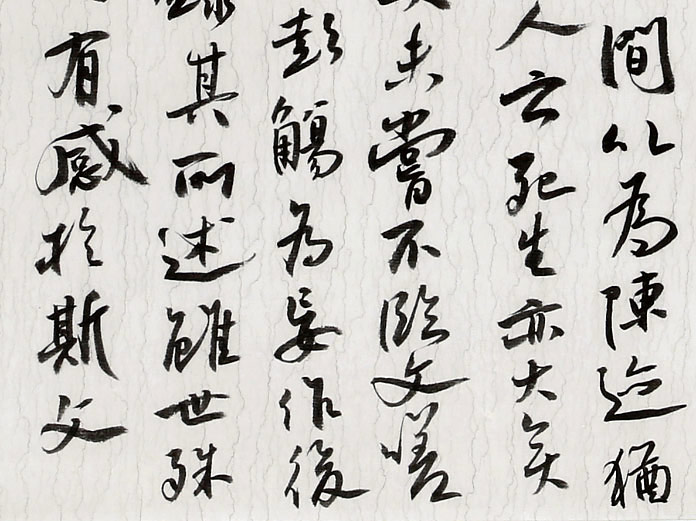 間以為陳迹猶
人云死生亦大矣
未嘗不臨文嗟
彭殤為妄作後
其所述雖世殊
有感於斯文